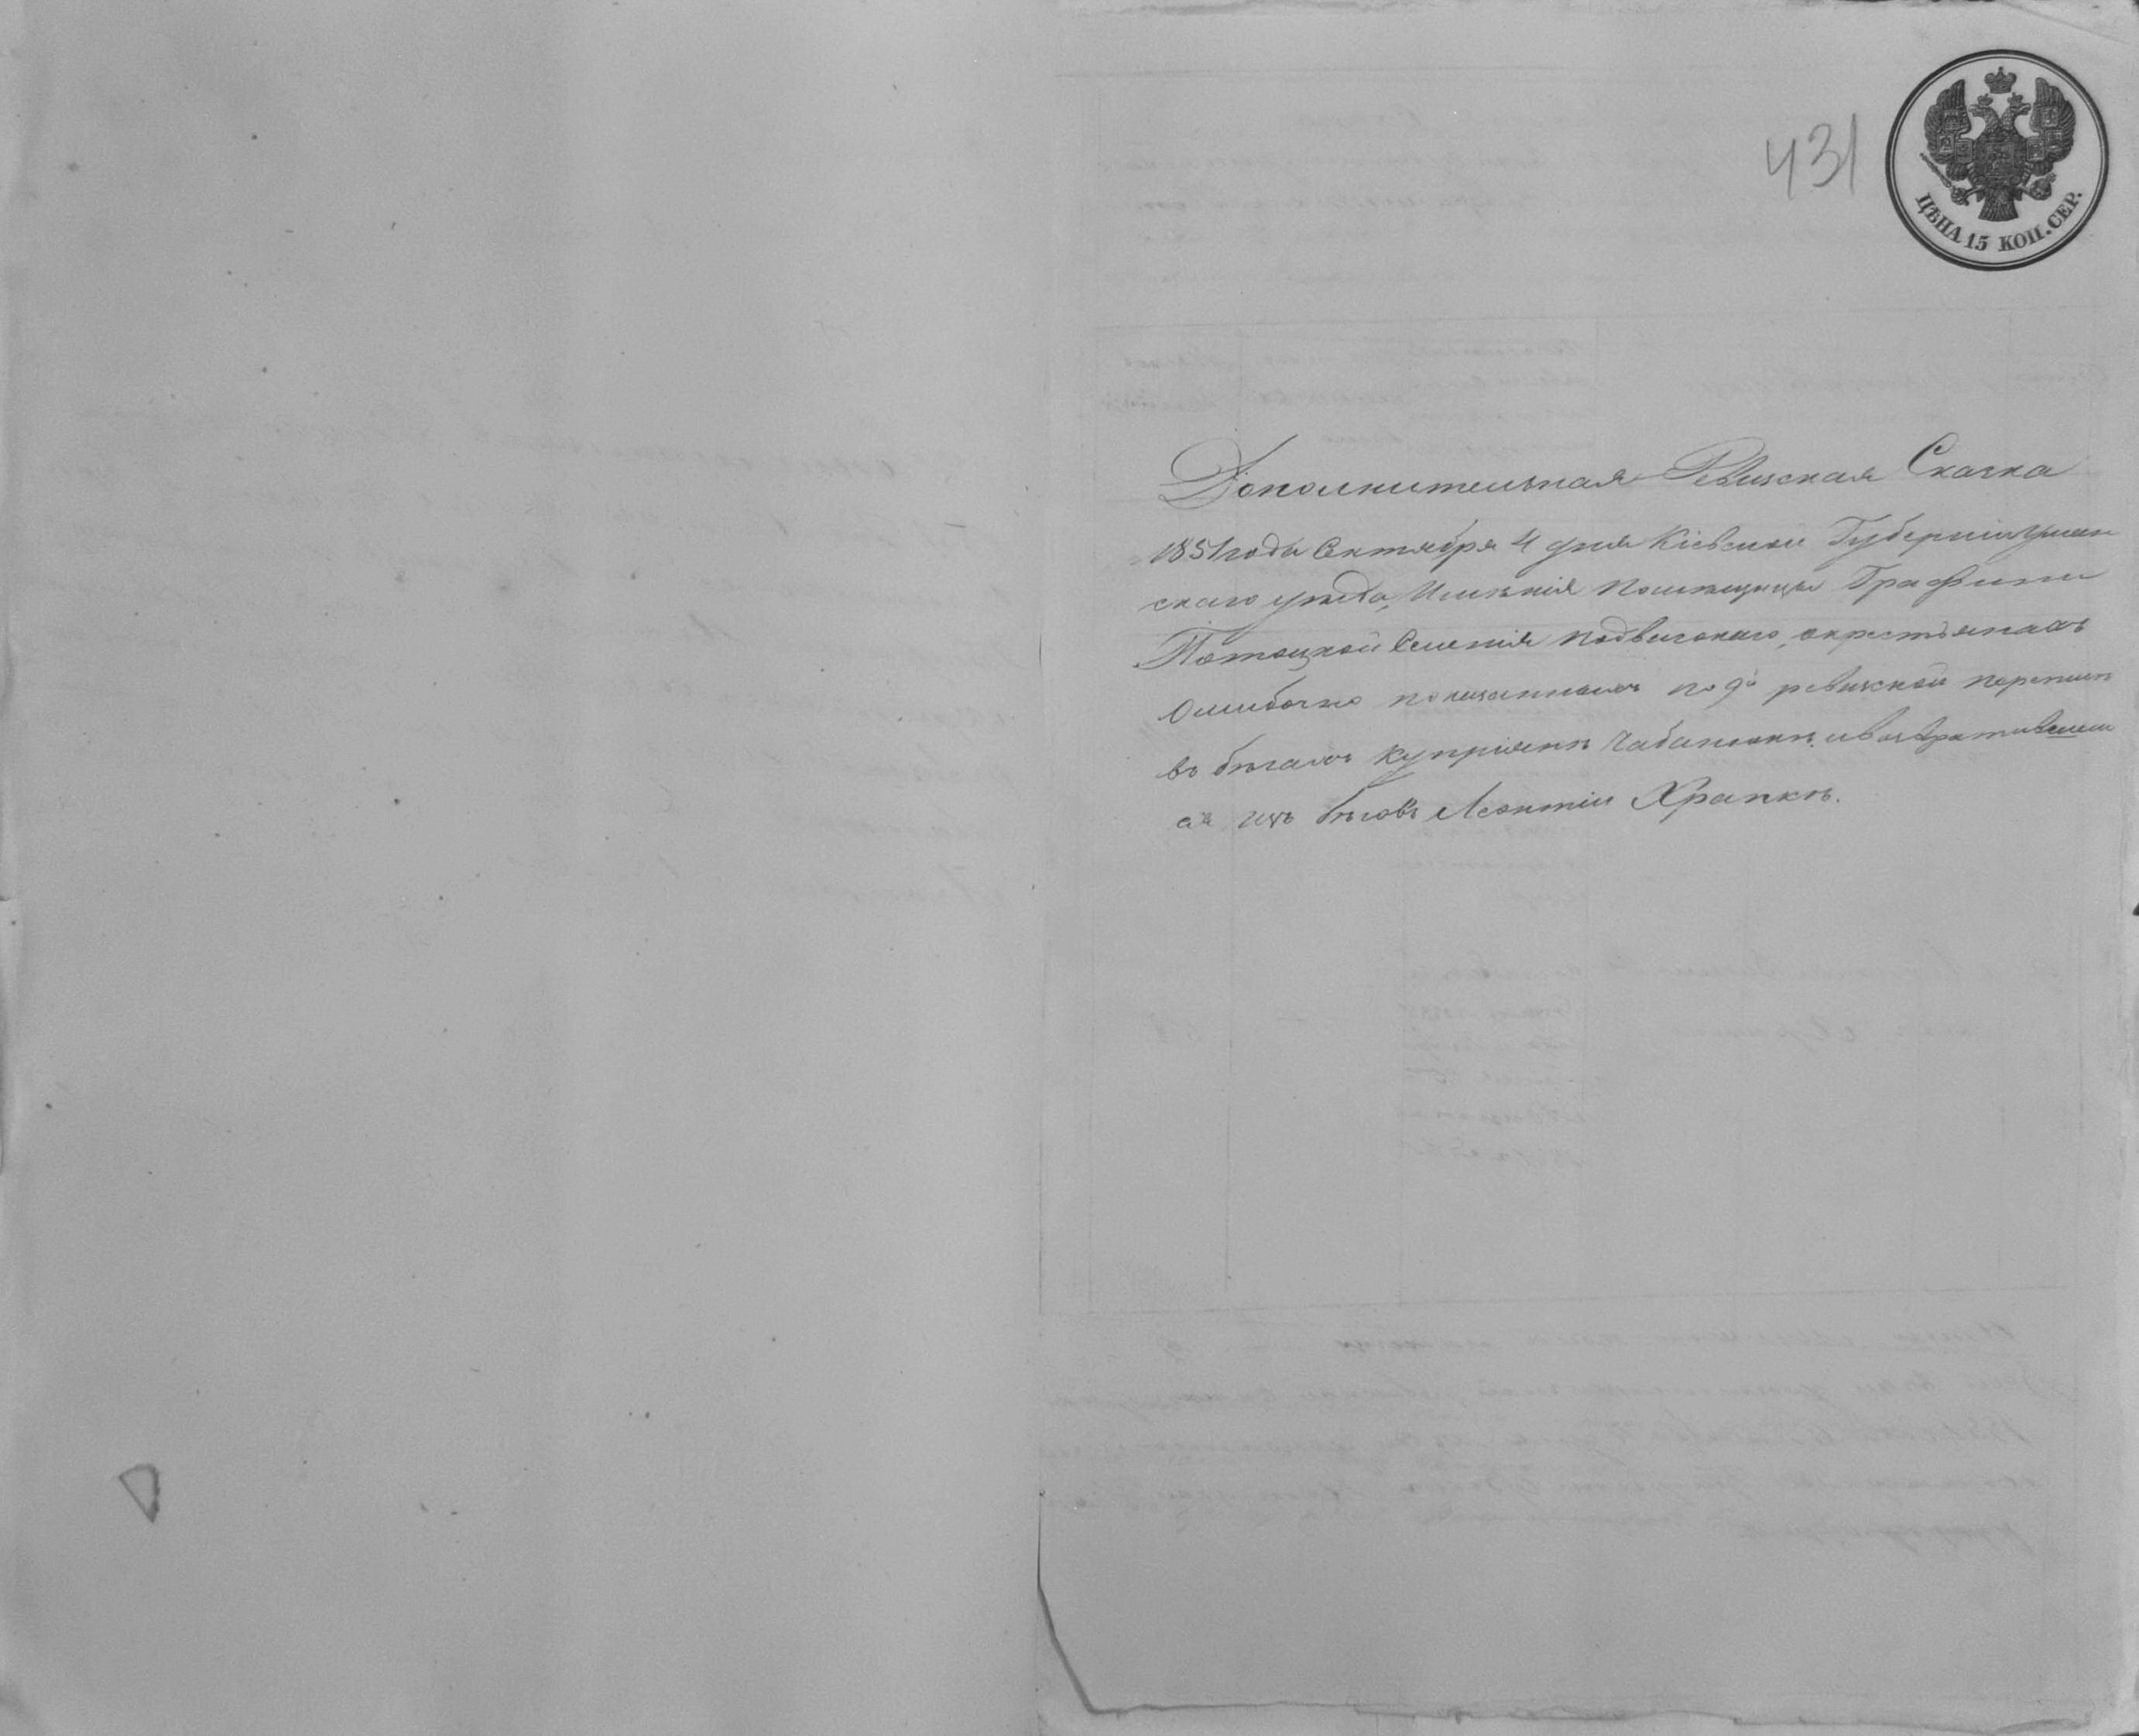 431
ЦѢНА 15 КОП. СЕР.
Дополнительная Ревизская Сказка
1851 года Сентября 4 дня Кіевской Губерніи Уман
скаго уѣзда, Имѣнія Помѣщицы Графини
Потоцкой Селенія Подвысокаго, о крестьянахъ
Ошибочно показанныхъ по 9й ревизской переписи
въ бѣгахъ Купріянѣ Чабанюкѣ и возвратившем
ся изъ бѣговъ Леонтіи Храпкѣ.